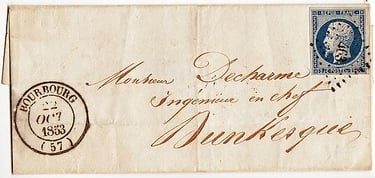 REPUB. FRANC.
POSTES
Monsieur Decharme
Ingénieur en chef
Dunkerque
BOURBOURG
22
OCT
1853
(57)